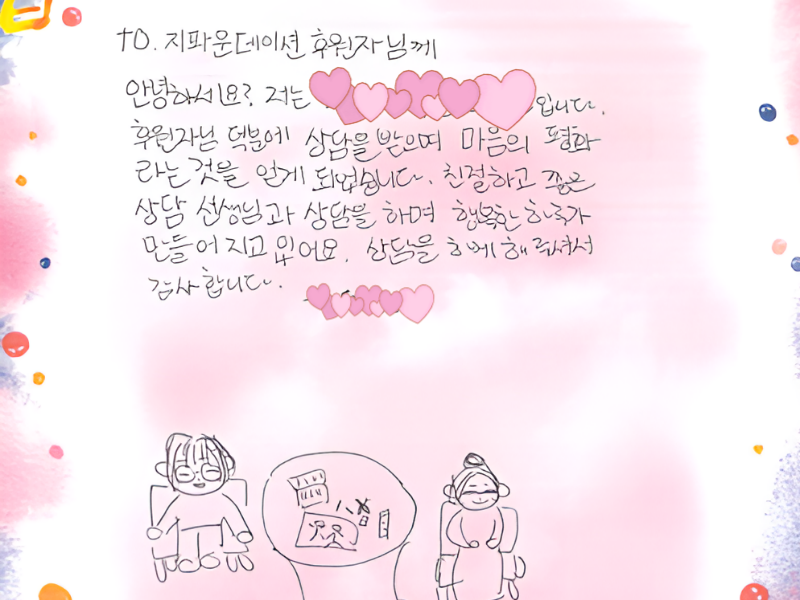 TO. 지파운데이션 후원자님께
안녕하세요? 저는 입니다.
후원자님 덕분에 상담을 받으며 마음의 평화
라는 것을 얻게 되었습니다. 친절하고 좋은
상담 선생님과 상담을 하며 행복한 하루가
만들어지고 있어요. 상담을 하게 해 주셔서
감사합니다.